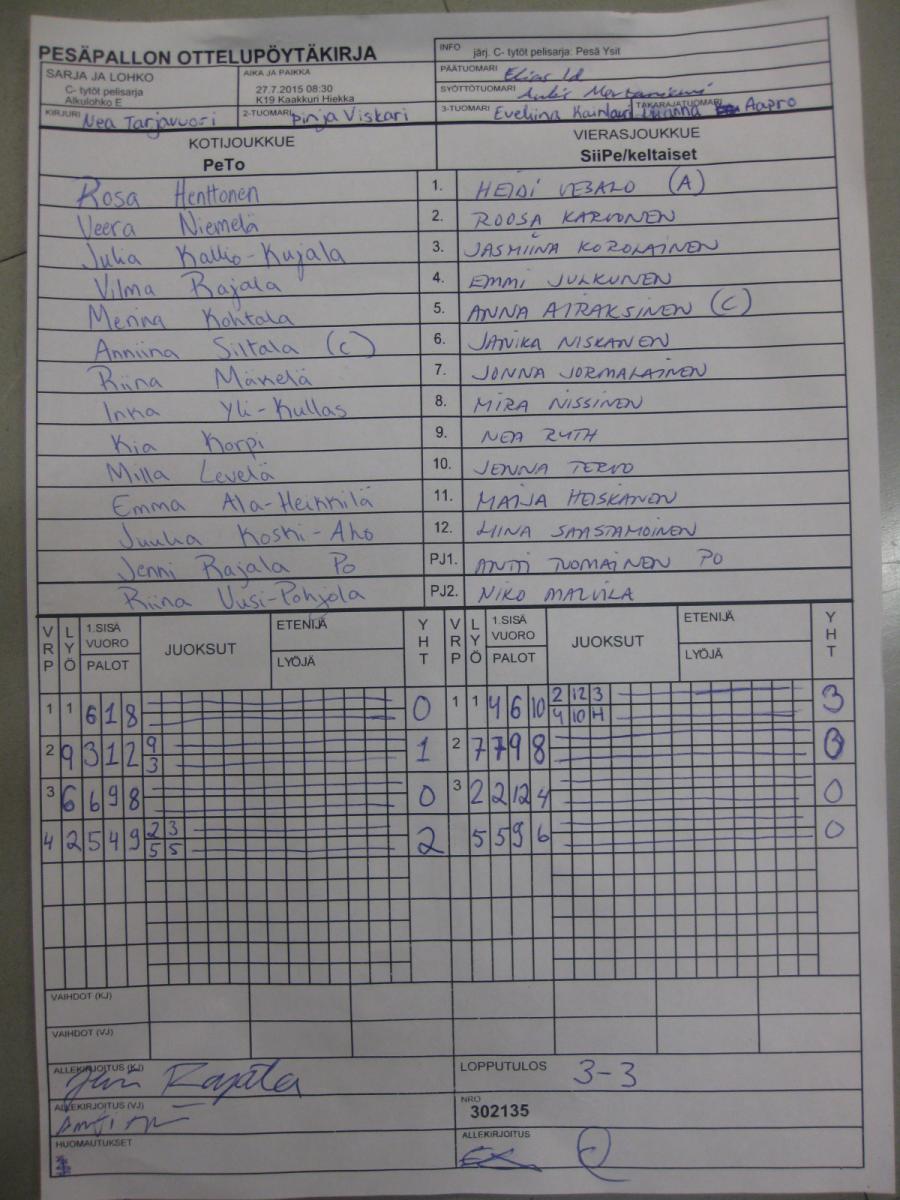 PESÄPALLON OTTELUPÖYTÄKIRJA
INFO järj. C- tytöt pelisarja: Pesä Ysit
SARJA JA LOHKO
C- tytöt pelisarja
Alkulohko E
AIKA JA PAIKKA
27.7.2015 08:30
K19 Kaakkuri Hiekka
PÄÄTUOMARI Elias
SYÖTTÖTUOMARI
KIRJURI Nea Tarjavuori
2-TUOMARI Pinja Viskari
3-TUOMARI Eveliina
TAKARAJATUOMARI Aapro
KOTIJOUKKUE
PeTo
VIERASJOUKKUE
SiiPe/keltaiset
Rosa Henttonen 1. HEIDI VEBALO (A)
Veera Niemelä 2. ROOSA KARVONEN
Julia Kallio-Kujala 3. JASMIINA KOROLAINEN
Vilma Rajala 4. EMMI JULKUNEN
Menna Kohtala 5. ANNA AIRAKSINEN (C)
Anniina Siltala (c) 6. JANIKA NISKANEN
Riina Mäkelä 7. JONNA JORMALAINEN
Inka Yli-Kullas 8. MIRA NISSINEN
Kia Korpi 9. NEA RUTH
Milla Levelä 10. JENNA TERVO
Emma Ala-Heikkilä 11. MAIJA HEISKANEN
Juulia Koski-Aho 12. MINA SAASTAMOINEN
Jenni Rajala Po PJ1. ANTTI TUOMAINEN PO
Riina Uusi-Pohjola PJ2. NIKO MALVILA
VRP LYÖ 1.SISÄ VUORO PALOT JUOKSUT ETENIJÄ LYÖJÄ YHT VRP LYÖ 1.SISÄ VUORO PALOT JUOKSUT ETENIJÄ LYÖJÄ YHT
1 1 6 1 8 0 1 1 4 6 10 2 12 3 3
4 10 H
2 9 3 12 9 1 2 7 7 9 8 0
3
3 6 6 9 8 0 3 2 2 12 4 0
4 2 5 4 9 2 3 2 5 5 9 6 0
5 5
VAIHDOT (KJ)
VAIHDOT (VJ)
ALLEKIRJOITUS (KJ) Rajala
LOPPUTULOS 3-3
ALLEKIRJOITUS (VJ)
NRO
302135
HUOMAUTUKSET
ALLEKIRJOITUS